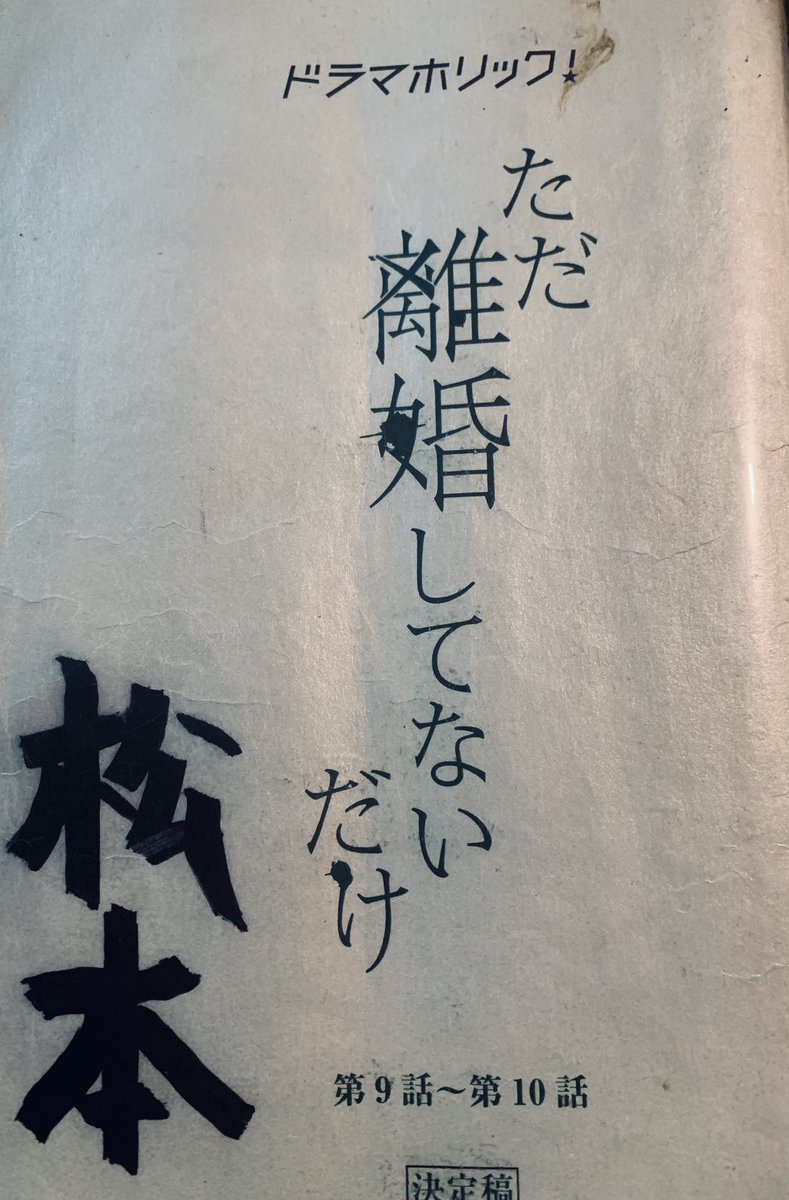 ドラマホリック!
ただ
離婚してない
だけ
第9話～第10話
決定稿
松本